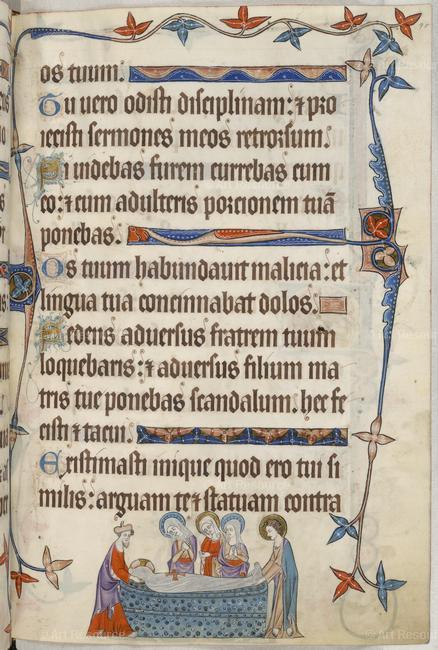 os tuum.
Tu uero odisti disciplinam: ⁊ pro
iecisti sermones meos retrorsum.
Si uidebas furem currebas cum
eo: ⁊ cum adulteris porcionem tuā
ponebas.
Os tuum habundauit malicia: et
lingua tua concinnabat dolos.
Sedens aduersus fratrem tuum
loquebaris: ⁊ aduersus filium ma
tris tue ponebas scandalum. hec fe
cisti ⁊ tacui.
Existimasti inique quod ero tui si
milis: arguam te ⁊ statuam contra
© Art Resource